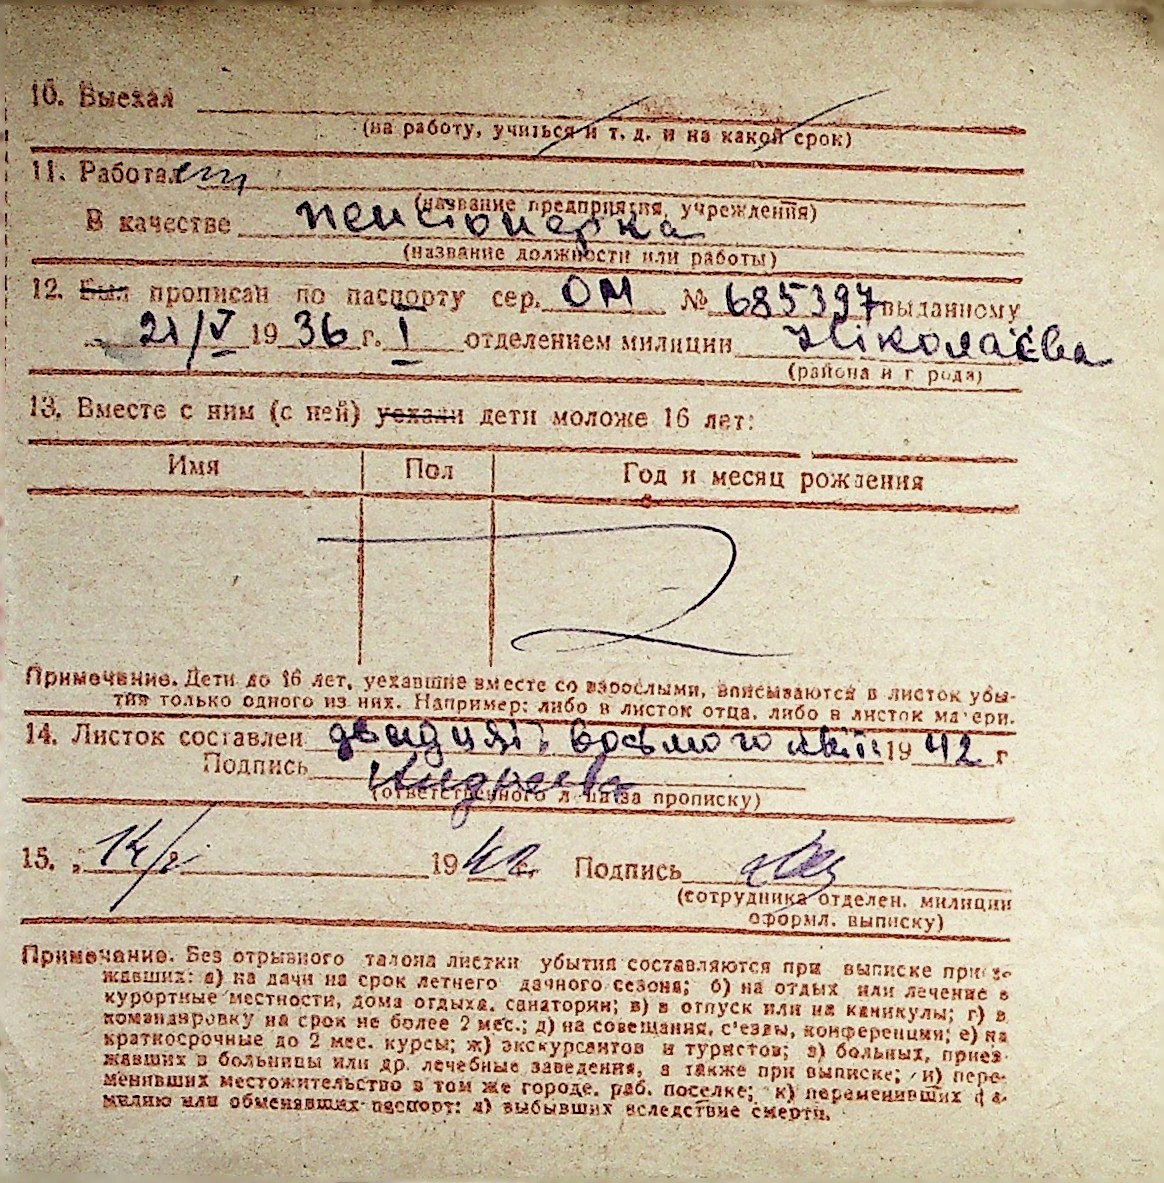 10. Выехал
(на работу, учиться и т. д. и на какой срок)
11. Работает
(название предприятия, учреждения)
В качестве пенсіонерка
(название должности или работы)
12. Был прописан по паспорту сер. ОМ № 685397 выданному
21/V 1936 г. I отделением милиции Ніколаєва
(района и города)
13. Вместе с ним (с ней) уехали дети моложе 16 лет:
Имя Пол Год и месяц рождения
Примечание. Дети до 16 лет, уехавшие вместе со взрослыми, вписываются в листок убы-
тия только одного из них. Например: либо в листок отца, либо в листок матери.
14. Листок составлен двадцять восьмого 1942 г
Подпись Андреева
(ответственного лица за прописку)
15. 1942 г. Подпись
(сотрудника отделен. милиции
оформл. выписку)
Примечание. Без отрывного талона листки убытия составляются при выписке приез-
жавших: а) на дачи на срок летнего дачного сезона; б) на отдых или лечение в
курортные местности, дома отдыха, санатории; в) в отпуск или на каникулы; г) в
командировку на срок не более 2 мес.; д) на совещания, с'езды, конференции; е) на
краткосрочные до 2 мес. курсы; ж) экскурсантов и туристов; з) больных, приез-
жавших в больницы или др. лечебные заведения, а также при выписке; и) пере-
менивших местожительство в том же городе, раб. поселке; к) переменивших фа-
милию или обменявших паспорт; л) выбывших вследствие смерти.